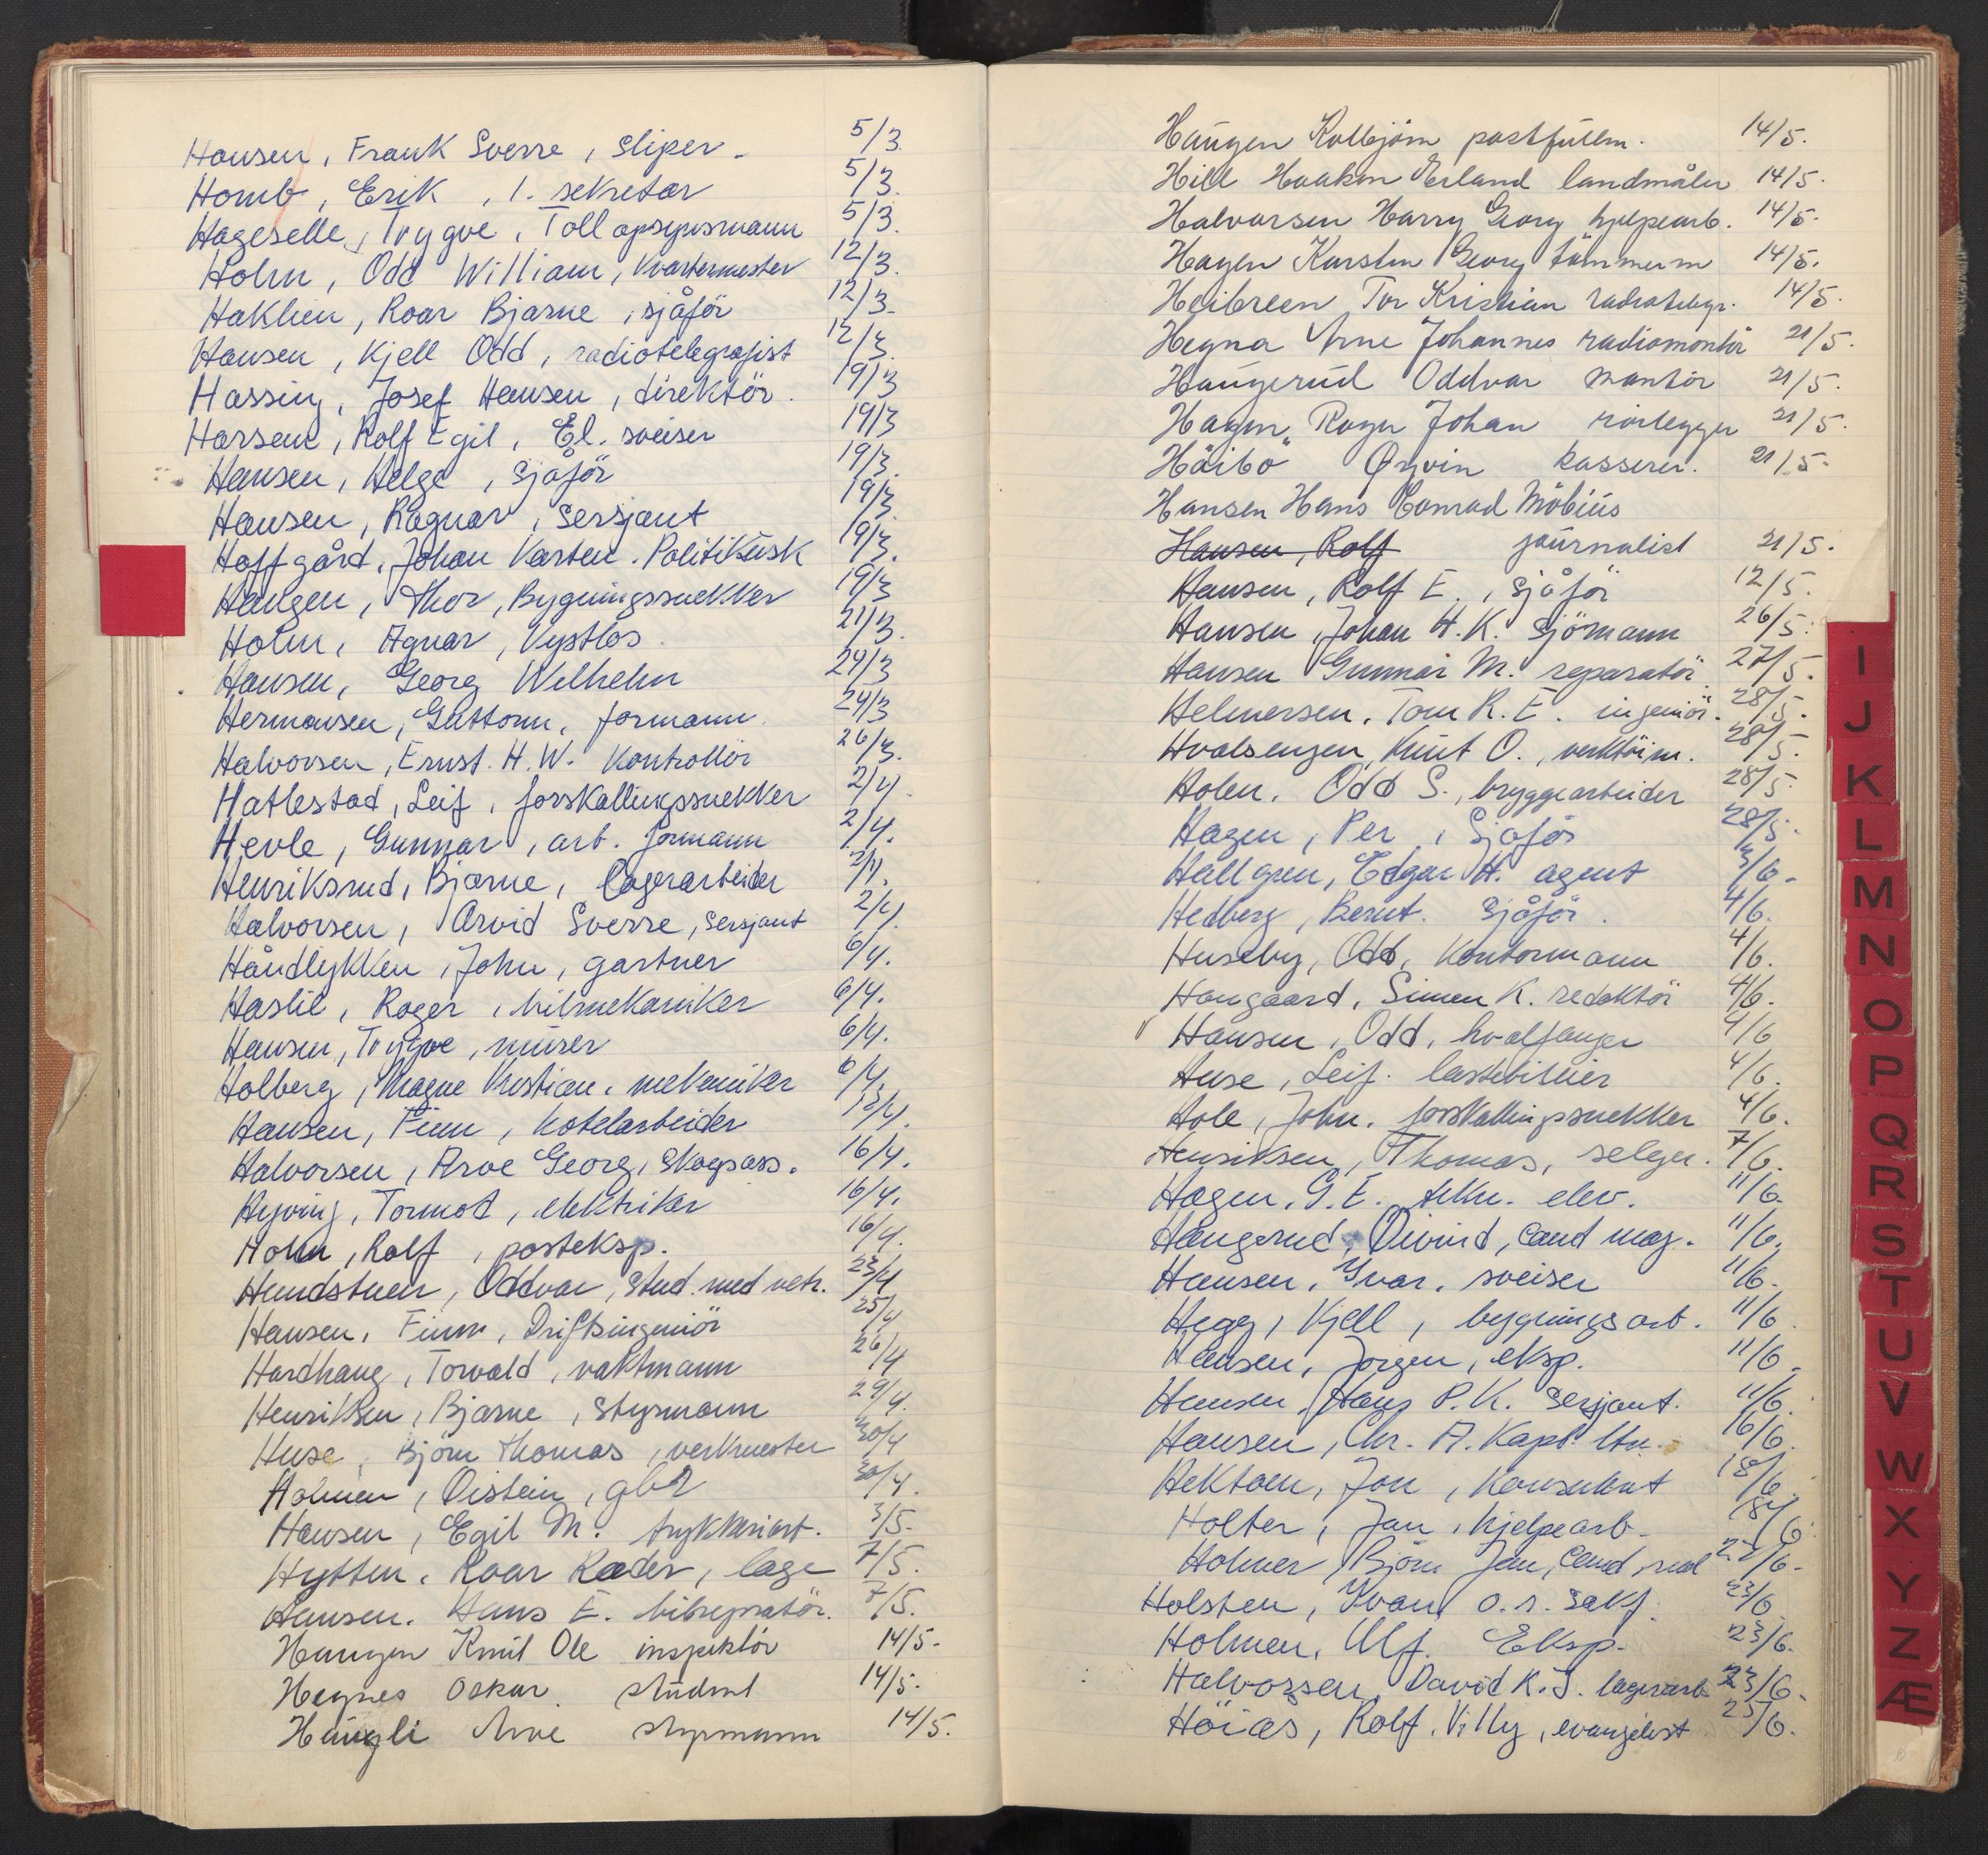 Hansen, Frank Sverre, sliper. 5/3.
Homb, Erik, 1. sekretær 5/3.
Hageselle, Trygve, Tollopsynsmann 5/3.
Holm, Odd William, Kvartermester 12/3.
Haklien, Roar Bjarne, sjåför 12/3.
Hansen, Kjell Odd, radiotelegrafist 12/3.
Hassing, Josef Hansen, direktör. 19/3
Hansen, Rolf Egil, El. sveiser 19/3
Hansen, Helge, sjåför 19/3.
Hansen, Ragnar, sersjant 19/3
Hoffgård, Johan Karsten. Politikusk 19/3.
Haugen, Thor, Bygningssnekker 19/3
Holm, Agnar, Vystlos. 21/3.
Hansen, Georg Wilhelm 24/3
Hermansen, Guttorm, formann. 24/3
Halvorsen, Ernst H.W. Kontrollör 26/3.
Hatlestad, Leif, forskallingssnekker 2/4.
Hevle, Gunnar, art. formann 2/4.
Henriksrud, Bjarne, lagerarbeider 2/4.
Halvorsen, Arvid Sverre, sersjant 2/4.
Håndlykken, John, gartner 6/4.
Haslie, Roger, bilmekaniker 6/4.
Hansen, Trygve, murer 6/4.
Holberg, Magne Kristian, mekaniker 6/4.
Hansen, Finn, hotelarbeider 13/4.
Halvorsen, Arve Georg, Skogsass. 16/4.
Hyving, Tormod, elektriker 16/4.
Holm, Rolf, posteksp. 16/4.
Hundstuen, Oddvar, stud. med vetr. 23/4
Hansen, Finn, Driftsingeniör 25/4
Hardhaug, Torvald, vaktmann 26/4
Henriksen, Bjarne, styrmann 29/4.
Huse, Björn Thomas, verkmester 30/4
Holmen, Öistein, gbr 30/4.
Hansen, Egil M. trykkeriarb. 3/5.
Hytten, Roar Rader, lage 7/5.
Hansen, Hans E. bilreparatör. 7/5.
Haugen Knut Ole inspektör 14/5.
Hegnes Oskar student 14/5.
Haugli Arve styrmann 14/5.
Haugen Kolbjörn postfullm. 14/5.
Hill Haakon Erland landmåler 14/5.
Halvorsen Harry Georg hjelpearb. 14/5.
Hagen Karsten Georg tömmerm 14/5.
Heibreen Tor Kristian radiotelegr. 14/5.
Hegna Arne Johannes radiomontör 21/5.
Haugerud Oddvar montör 21/5.
Hagen, Roger Johan rörlegger 21/5.
Häibö Ørjvin kasserer. 21/5.
Hansen Hans Conrad Möbius
Hansen, Rolf journalist 21/5.
Hansen, Rolf E., sjåför 12/5.
Hansen, Johan H.K. sjömann 26/5.
Hansen Gunnar M. reparatör 27/5.
Helmersen, Tom R.E. ingeniör. 28/5.
Hvalsengen, Knut O., verktöim. 28/5.
Holen, Odd S., bryggearbeider 28/5.
Hagen, Per, Sjåför 28/5.
Hallgren, Edgar H. agent 3/6.
Hedberg, Bernt. Sjåför. 4/6.
Huseby, Odd, Kontormann 4/6.
Haugaard, Simen K. redaktör 4/6.
Hansen, Odd, hvalfanger 4/6
Huse, Leif. lastebileier 4/6.
Hole, John, forskallingssnekker 4/6.
Henriksen, Thomas, selger. 7/6.
Hagen, G.E. tekn. elev. 11/6.
Haugerud, Öivind, Cand mag. 11/6.
Hansen, Yvar, sveiser 11/6.
Hegg, Kjell, bygningsarb. 11/6.
Hansen, Jörgen, eksp. 11/6.
Hansen, Hans P.K. sersjant. 11/6.
Hansen, Chr. A. Kapt. ltn. 16/6.
Hektoen, Jon, Konsulent 18/6.
Holter, Jan, hjelpearb. 18/6.
Holmer, Björn Jan, Cand, real 22/6.
Holsten, Yvan, o.r. sakf. 23/6
Holmen, Ulf. Eksp. 23/6.
Halvorsen, David K.J. lagerarb. 23/6.
Höiås, Rolf. Villy, evangelist 25/6.
I
J
K
L
M
N
O
P
Q
R
S
T
U
V
W
X
Y
Z
Æ